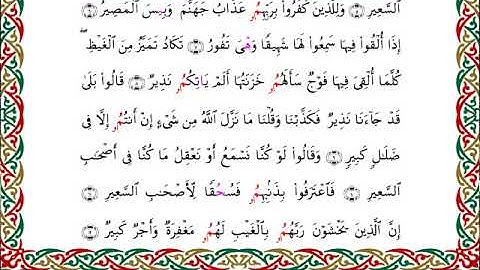 ٱلسَّعِيرِ وَلِلَّذِينَ كَفَرُوا۟ بِرَبِّهِمُۥ عَذَابُ جَهَنَّمَ وَبِيسَ ٱلْمَصِيرُ
إِذَآ أُلْقُوا۟ فِيهَا سَمِعُوا۟ لَهَا شَهِيقًا وَهْىَ تَفُورُ تَكَادُ تَمَيَّزُ مِنَ ٱلْغَيْظِ ۖ
كُلَّمَآ أُلْقِىَ فِيهَا فَوْجٌ سَأَلَهُمُۥ خَزَنَتُهَآ أَلَمْ يَاتِكُمُۥ نَذِيرٌ قَالُوا۟ بَلَىٰ
قَدْ جَآءَنَا نَذِيرٌ فَكَذَّبْنَا وَقُلْنَا مَا نَزَّلَ ٱللَّهُ مِن شَىْءٍ إِنْ أَنتُمُۥٓ إِلَّا فِى
ضَلَـٰلٍ كَبِيرٍ وَقَالُوا۟ لَوْ كُنَّا نَسْمَعُ أَوْ نَعْقِلُ مَا كُنَّا فِىٓ أَصْحَـٰبِ
ٱلسَّعِيرِ فَٱعْتَرَفُوا۟ بِذَنۢبِهِمُۥ فَسُحُقًا لِّأَصْحَـٰبِ ٱلسَّعِيرِ
إِنَّ ٱلَّذِينَ يَخْشَوْنَ رَبَّهُمُۥ بِٱلْغَيْبِ لَهُمُۥ مَغْفِرَةٌ وَأَجْرٌ كَبِيرٌ